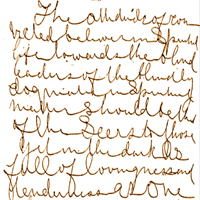 The attitude of con
verted believer in Spiritual
life towards the blind
leaders of the blind
dogmatist in Spiritual
matter should be that
of the Seers to those
yet in the dark. As
full of lovingness and
tenderness as one